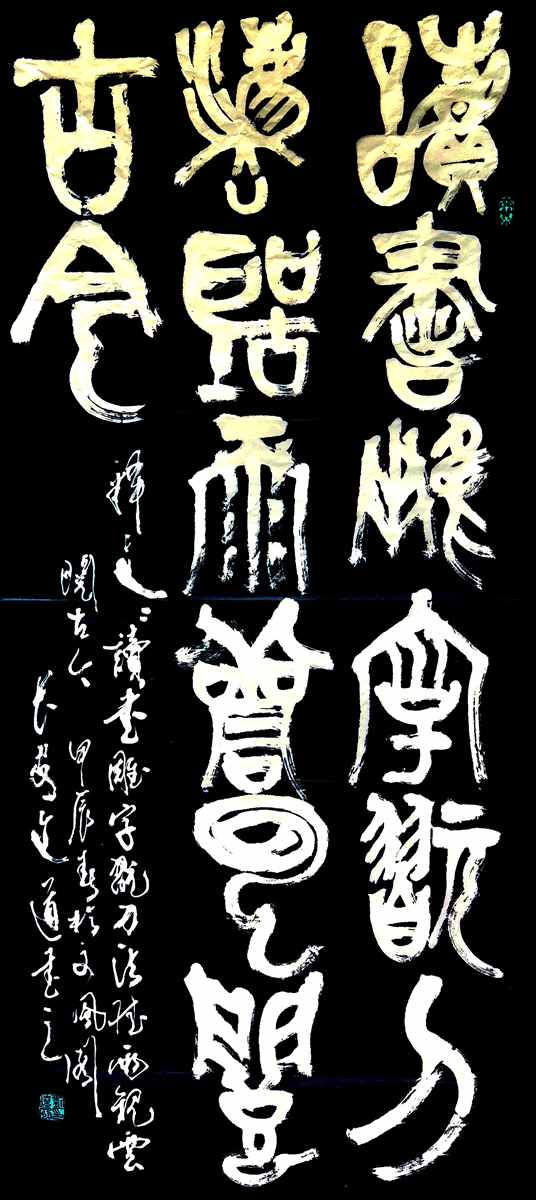 讀書雕字翫刀
法聽雨觀雲閱
古今
釋文：讀書雕字翫刀法聽雨觀雲
閱古今 甲辰春於文風閣
道書之